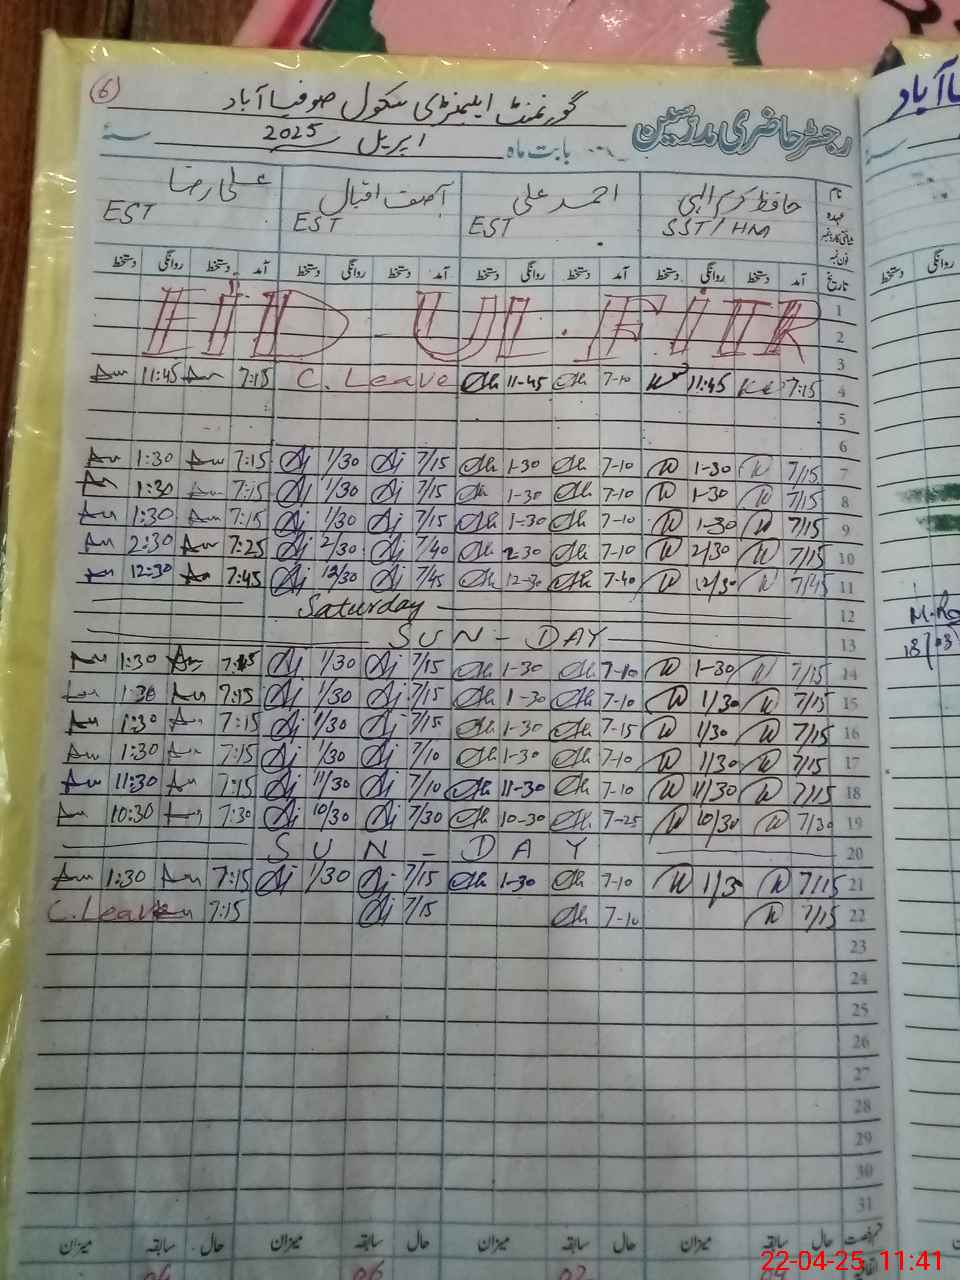 6
گورنمنٹ ایلیمنٹری سکول صوفیا آباد
رجسٹر حاضری مدرسین
بابت ماہ اپریل 2025 سنہ
نام حافظ کرم الہی احمد علی آصف اقبال علی رضا
عہدہ SST/HM EST EST EST
فون نمبر
تاریخ آمد دستخط روانگی دستخط آمد دستخط روانگی دستخط آمد دستخط روانگی دستخط آمد دستخط روانگی دستخط
1
EID UL. FITR
2
3
11:45 7:15 C. Leave 11-45 7-10 11:45 7:15 4
5
6
1:30 7:15 1/30 7/15 1-30 7-10 1-30 7/15 7
1:30 7:15 1/30 7/15 1-30 7-10 1-30 7/15 8
1:30 7:15 1/30 7/15 1-30 7-10 1-30 7/15 9
2:30 7:25 2/30 7/40 2-30 7-10 2/30 7/15 10
12:30 7:45 12/30 7/45 12-30 7-40 12/30 7/45 11
Saturday 12
SUN - DAY 13
1:30 7:15 1/30 7/15 1-30 7-10 1-30 7/15 14
1:30 7:15 1/30 7/15 1-30 7-10 1/30 7/15 15
1:30 7:15 1/30 7/15 1-30 7-15 1/30 7/15 16
1:30 7:15 1/30 7/10 1-30 7-10 1/30 7/15 17
11:30 7:15 11/30 7/10 11-30 7-10 11/30 7/15 18
10:30 7:30 10/30 7/30 10-30 7-25 10/30 7/30 19
SUN - DAY 20
1:30 7:15 1/30 7/15 1-30 7-10 1/30 7/15 21
C. Leave 7:15 7/15 7-10 7/15 22
23
24
25
26
27
28
29
30
31
حال سابقہ میزان حال سابقہ میزان حال سابقہ میزان حال سابقہ میزان
04 06 02
آباد
سنہ
روانگی دستخط
18/03
22-04-25 11:41